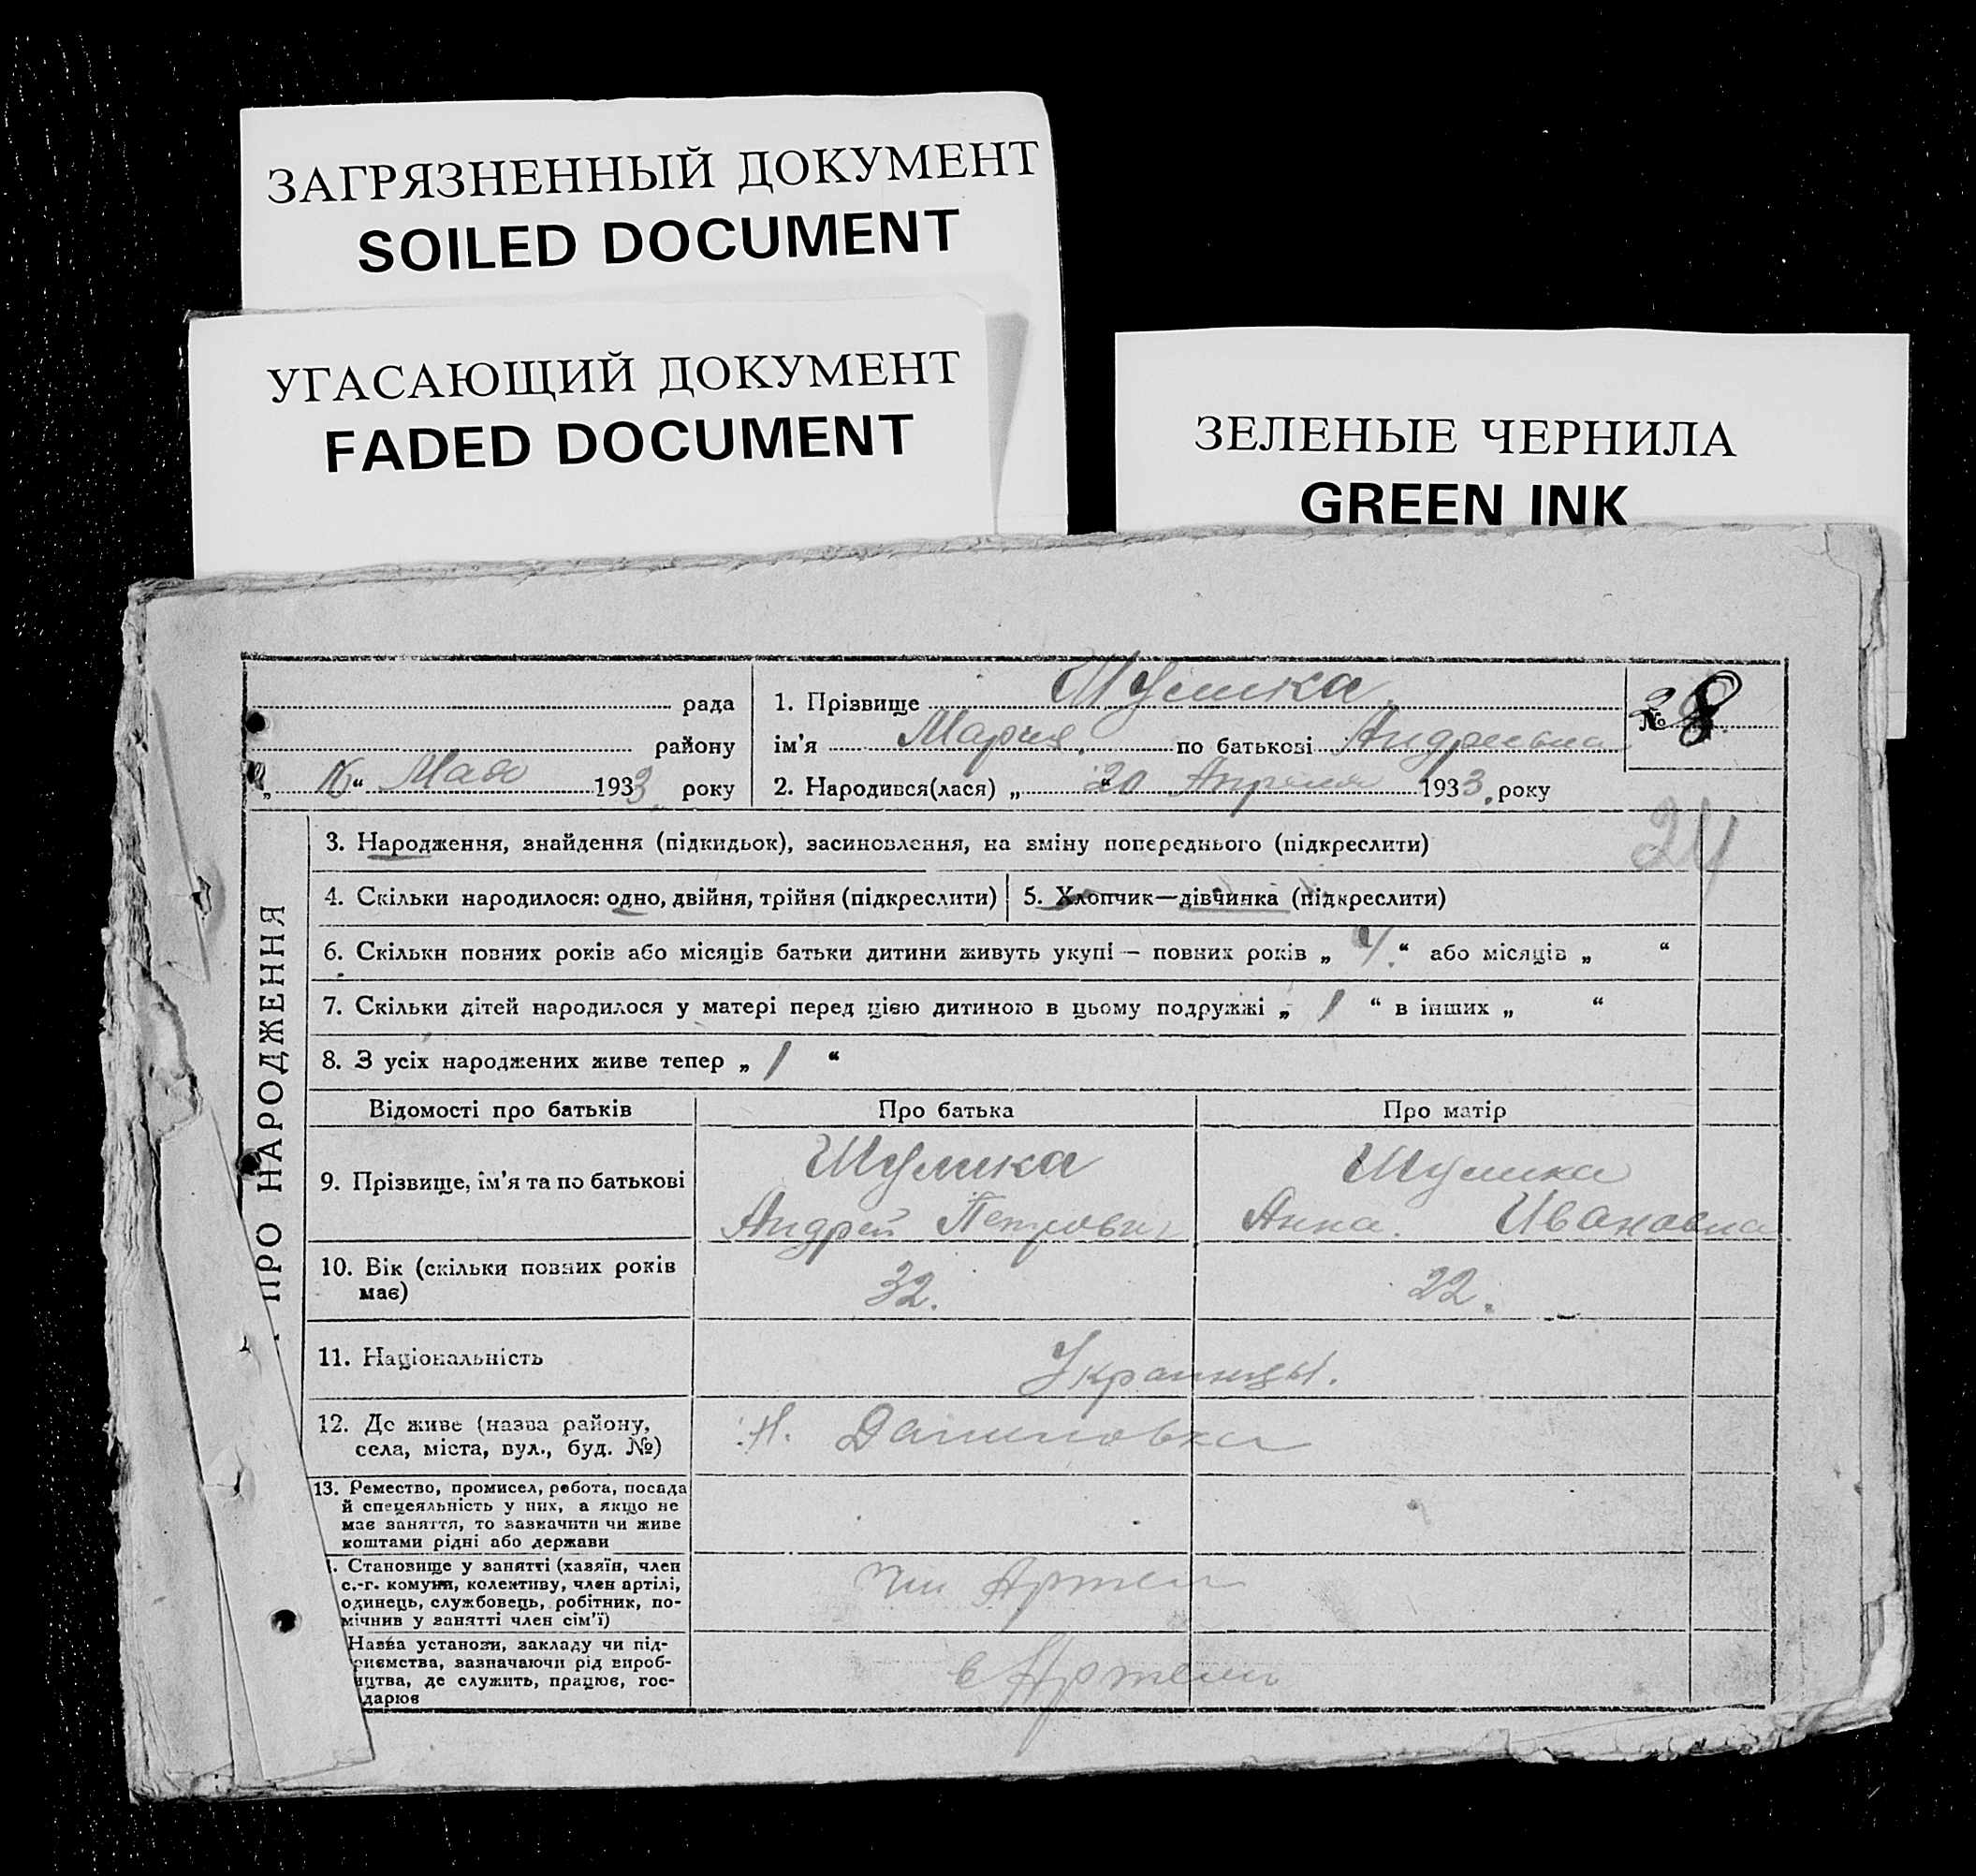 ЗАГРЯЗНЕННЫЙ ДОКУМЕНТ
SOILED DOCUMENT
УГАСАЮЩИЙ ДОКУМЕНТ
FADED DOCUMENT
ЗЕЛЕНЫЕ ЧЕРНИЛА
GREEN INK
рада
району
„ 16 “ Мая 1933 року
1. Прізвище Шушка
ім'я Мария. по батькові Андреевна
2. Народився(лася) „ 20 “ Апреля 1933. року
№ 8
24
ПРО НАРОДЖЕННЯ
3. Народження, знайдення (підкидьок), засиновлення, на зміну попереднього (підкреслити)
4. Скільки народилося: одно, двійня, трійня (підкреслити)
5. Хлопчик—дівчинка (підкреслити)
6. Скільки повних років або місяців батьки дитини живуть укупі — повних років „ 4. “ або місяців „ “
7. Скільки дітей народилося у матері перед цією дитиною в цьому подружжі „ 1 “ в інших „ “
8. З усіх народжених живе тепер „ 1 “
Відомості про батьків Про батька Про матір
9. Прізвище, ім'я та по батькові
Шушка Шушка
Андрей Петрович Анна. Ивановна
10. Вік (скільки повних років
має)
32. 22.
11. Національність
Украинцы.
12. Де живе (назва району,
села, міста, вул., буд. №)
Даниловка
13. Ремество, промисел, робота, посада
й спецеяльність у них, а якщо не
має заняття, то зазначити чи живе
коштами рідні або держави
. Становище у занятті (хазяїн, член
с.-г. комуни, колективу, член артілі,
одинець, службовець, робітник, по-
мічнив у занятті член сім'ї)
Чл. Артели
Назва установи, закладу чи під-
риємства, зазначаючи рід вироб-
ицтва, де служить, працює, гос-
дарює
в Артели